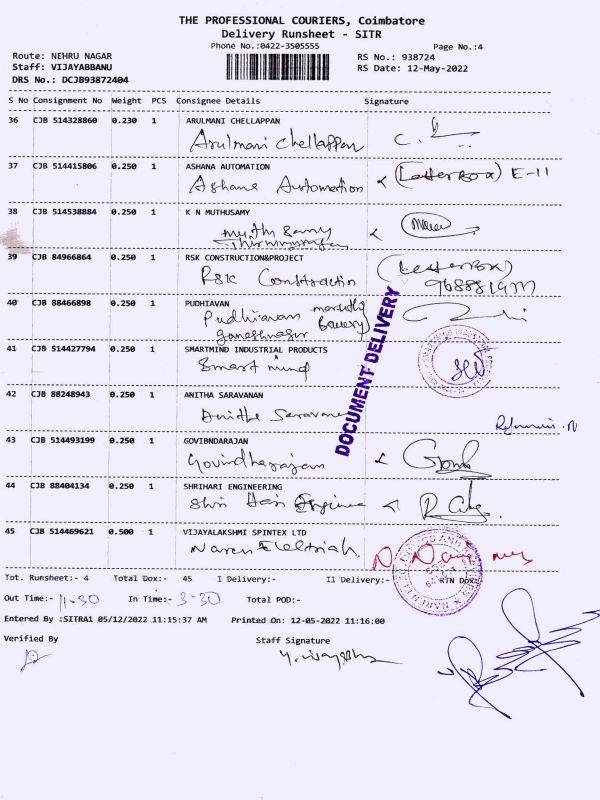 THE PROFESSIONAL COURIERS, Coimbatore
Delivery Runsheet - SITR
Phone No.:0422-3505555 Page No.:4
Route: NEHRU NAGAR RS No.: 938724
Staff: VIJAYABBANU RS Date: 12-May-2022
DRS No.: DCJB93872404
S No Consignment No Weight PCS Consignee Details Signature
36 CJB 514328860 0.230 1 ARULMANI CHELLAPPAN
Arulmani Chellappan
37 CJB 514415806 0.250 1 ASHANA AUTOMATION
Ashana Automation (Letter Box) E-11
38 CJB 514538884 0.250 1 K N MUTHUSAMY
Muthu Samy
39 CJB 84966864 0.250 1 RSK CONSTRUCTION&PROJECT
RSK Construction (Letter Box)
40 CJB 88466898 0.250 1 PUDHIAVAN
Pudhiavan
ganeshnagar Bakery
41 CJB 514427794 0.250 1 SMARTMIND INDUSTRIAL PRODUCTS
Smart mind
DOCUMENT DELIVERY
42 CJB 88248943 0.250 1 ANITHA SARAVANAN
Anitha Saravanan
43 CJB 514493199 0.250 1 GOVIBNDARAJAN
Govindharajan
44 CJB 88404134 0.250 1 SHRIHARI ENGINEERING
Shri Hari Engineer
45 CJB 514469621 0.500 1 VIJAYALAKSHMI SPINTEX LTD
Naren
Tot. Runsheet:- 4 Total Dox:- 45 I Delivery:- II Delivery:- RTN Dox:
Out Time:- 11-30 In Time:- 3-30 Total POD:-
Entered By :SITRA1 05/12/2022 11:15:37 AM Printed On: 12-05-2022 11:16:00
Verified By Staff Signature